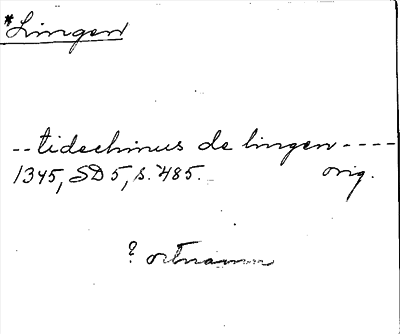 *Lingen
-- tidechinus de lingen ----
1345, SD 5, s. 485. orig.
? ortnamn